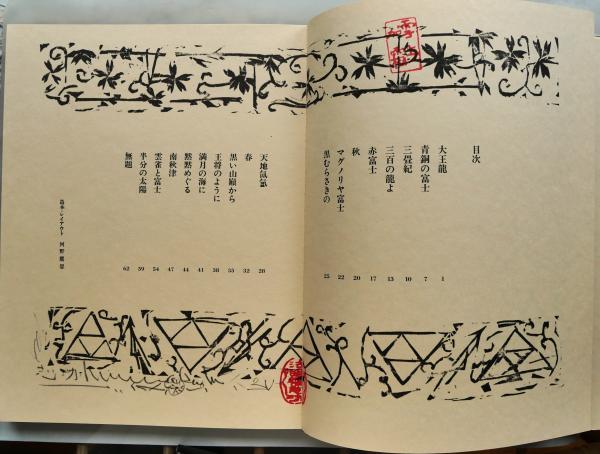 目次
大王龍 1
青銅の富士 7
三畳紀 10
三百の龍よ 13
赤富士 17
秋 20
マグノリヤ富士 22
黒むらさきの 25
天地氤氲 28
春 32
黒い山巓から 35
王将のように 38
満月の海に 41
黙黙めぐる 44
南秋津 47
雲雀と富士 54
半分の太陽 59
無題 62